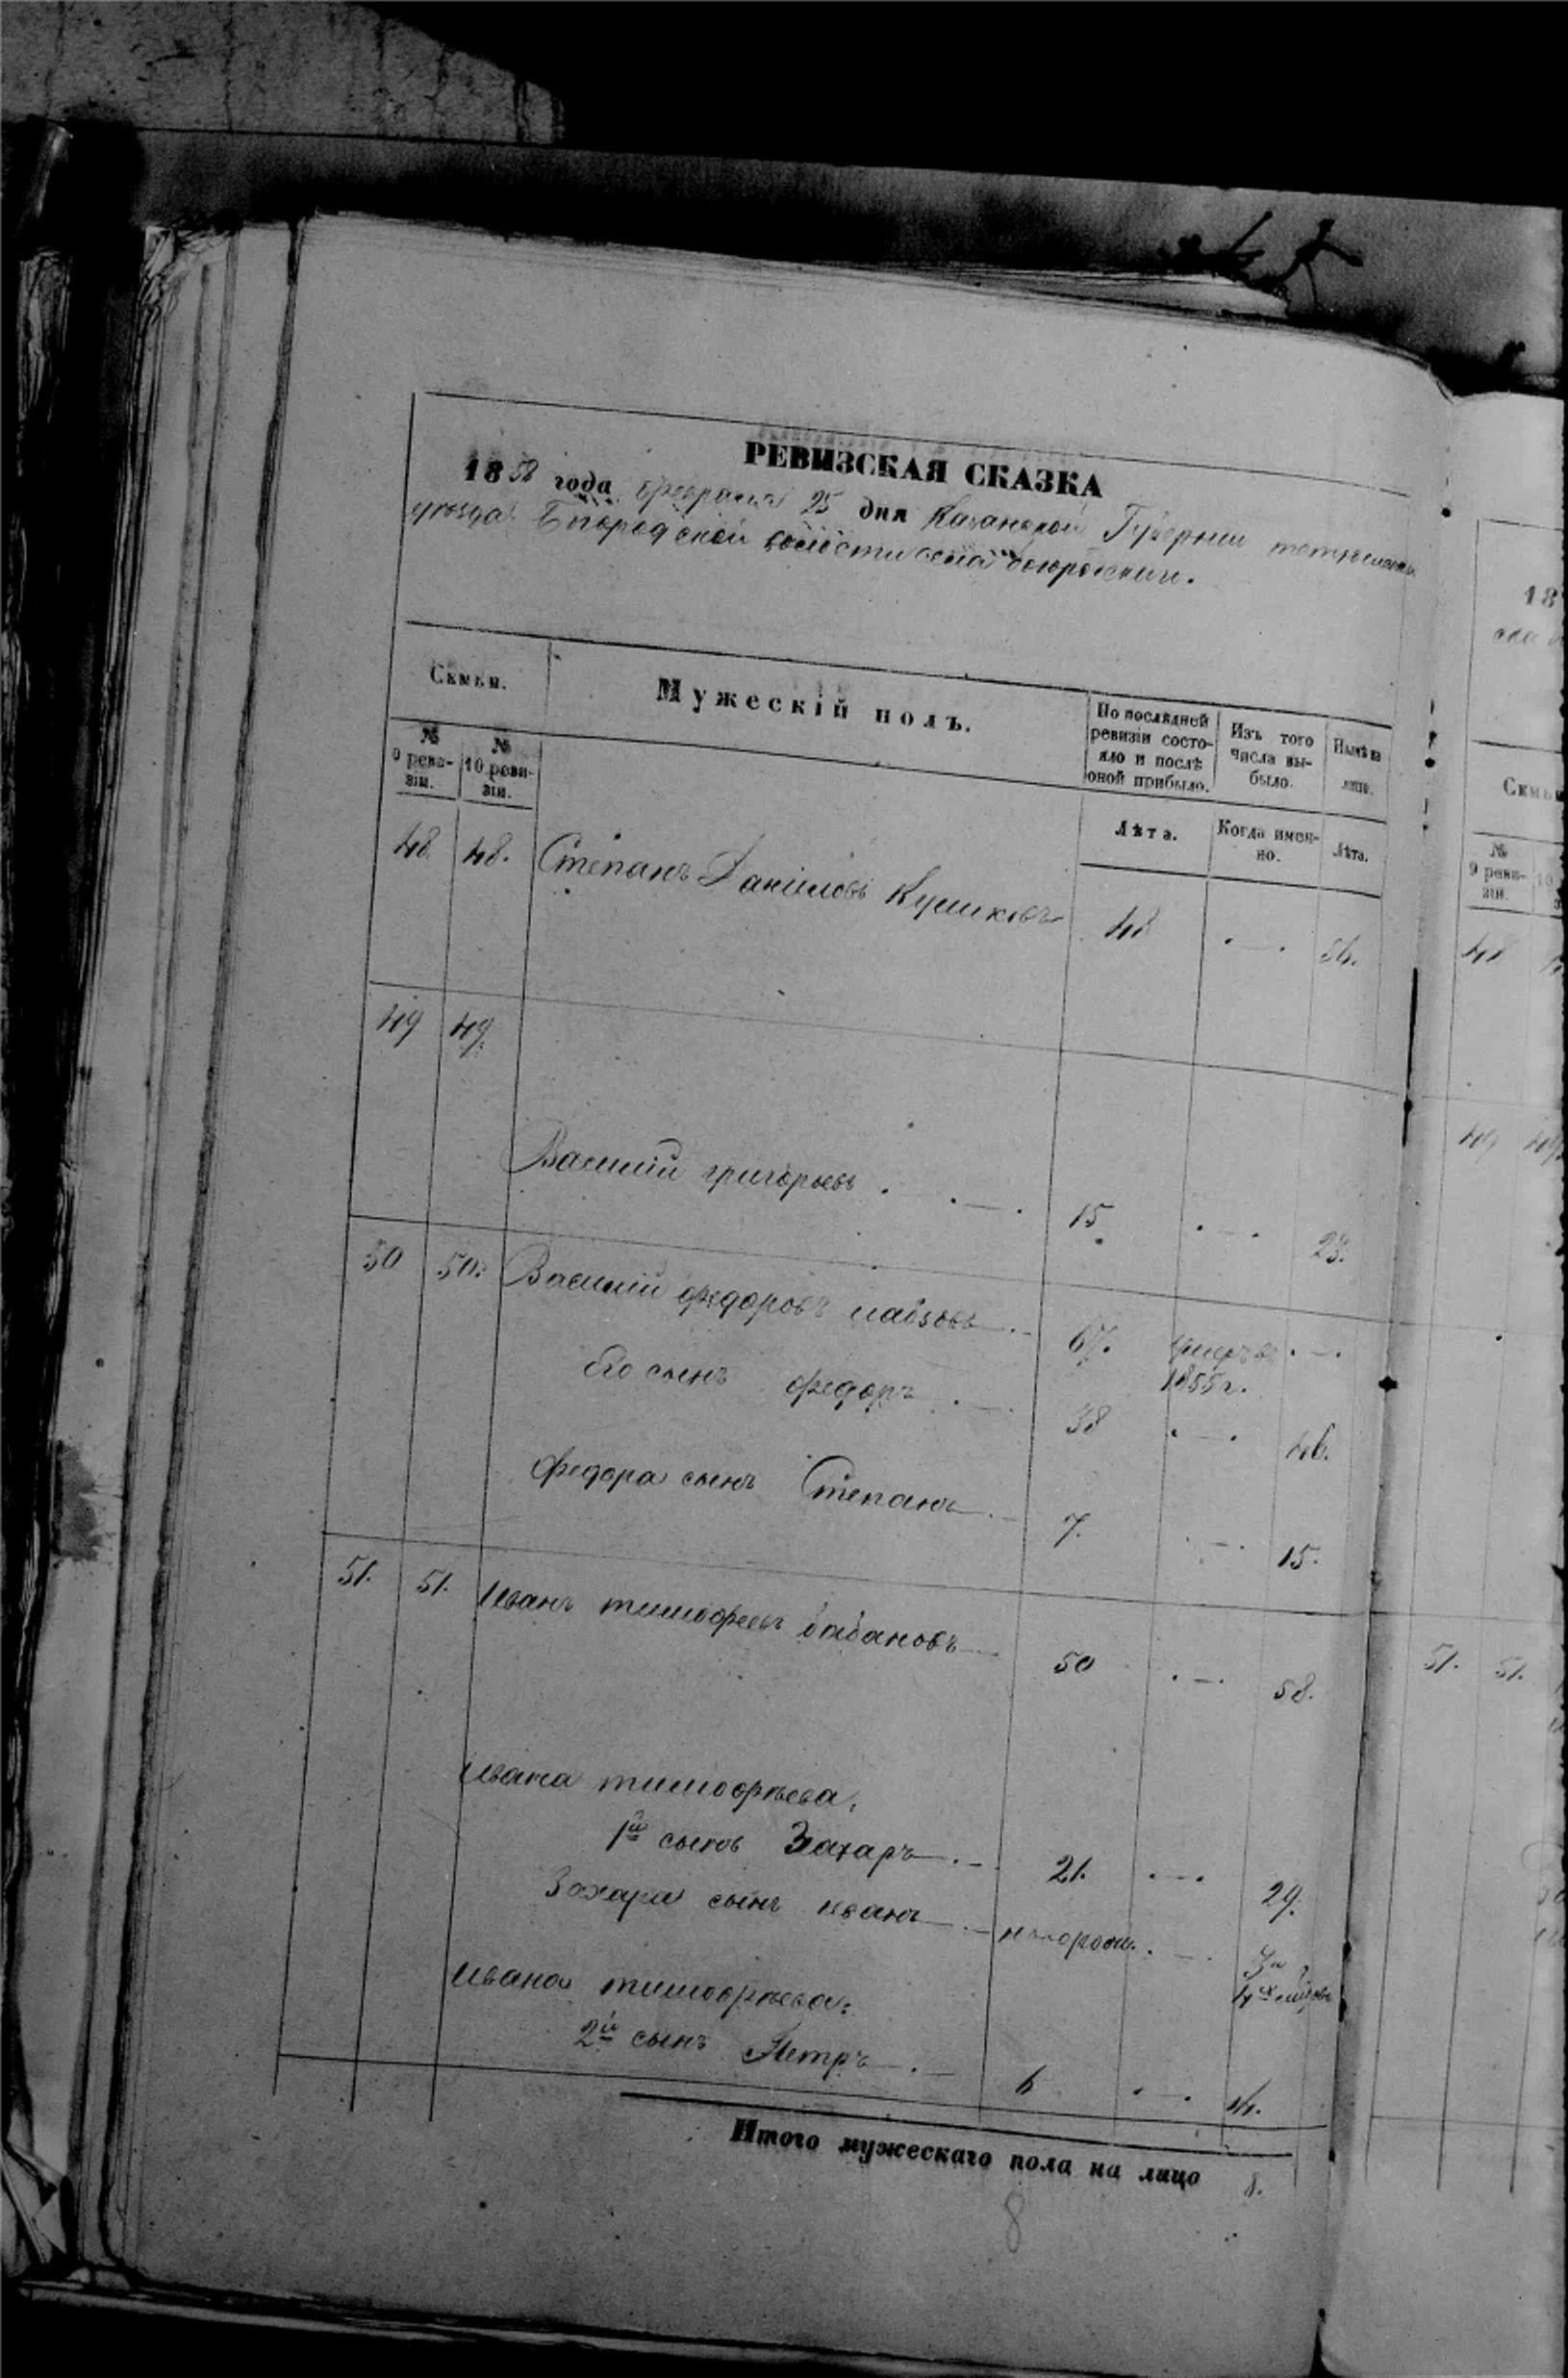 РЕВИЗСКАЯ СКАЗКА
1858 года февраля 25 дня Казанской Губернии тетюшскаго
уезда Богородской волости села
Семьи.
Мужескій полъ.
По послѣдней ревизіи состояло и послѣ оной прибыло.
Изъ того числа выбыло.
Нынѣ на лицо.
№ 9 ревизіи.
№ 10 ревизіи.
Лѣта.
Когда именно.
Лѣта.
48 48. Степанъ Даниловъ 48 . — . 56.
49 49.
Василій григорьевъ . . — . 15 . — . 23.
50 50. Василій федоровъ 67. умеръ въ 1855 г. . — .
Его сынъ федоръ . — 38 . — . 46.
федора сынъ Степанъ . — 7. . — . 15.
51. 51. Иванъ тимофеевъ бабановъ — 50 . — . 58.
Ивана тимофѣева,
1й сынъ Захаръ . — 21. . — . 29.
Захара сынъ иванъ . —
Ивана тимофѣева:
2й сынъ Петръ . — 6 . — . 14.
Итого мужескаго пола на лицо 8.
8
18
Семьи
№ 9 ревизіи.
48
49 49.
51. 51.